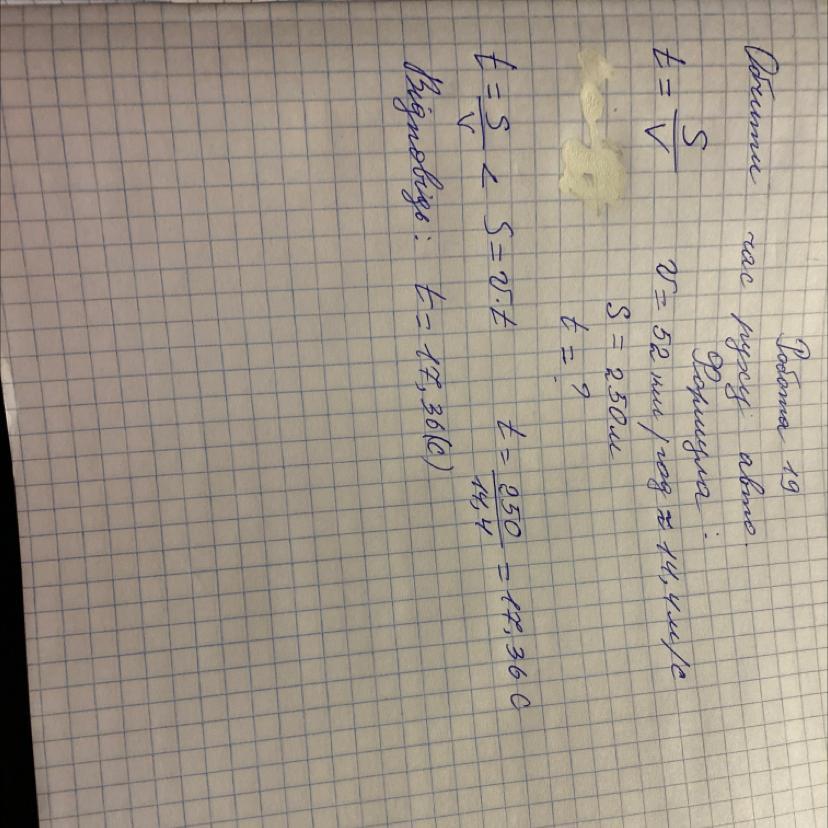 Робота 19
Обчисти час руху авто.
Формула:
t = S/V v = 52 км/год ≈ 14,4 м/с
S = 250 м
t = ?
t = S/V < S = v·t t = 250/14,4 = 17,36 с
Відповідь: t = 17,36 (с)